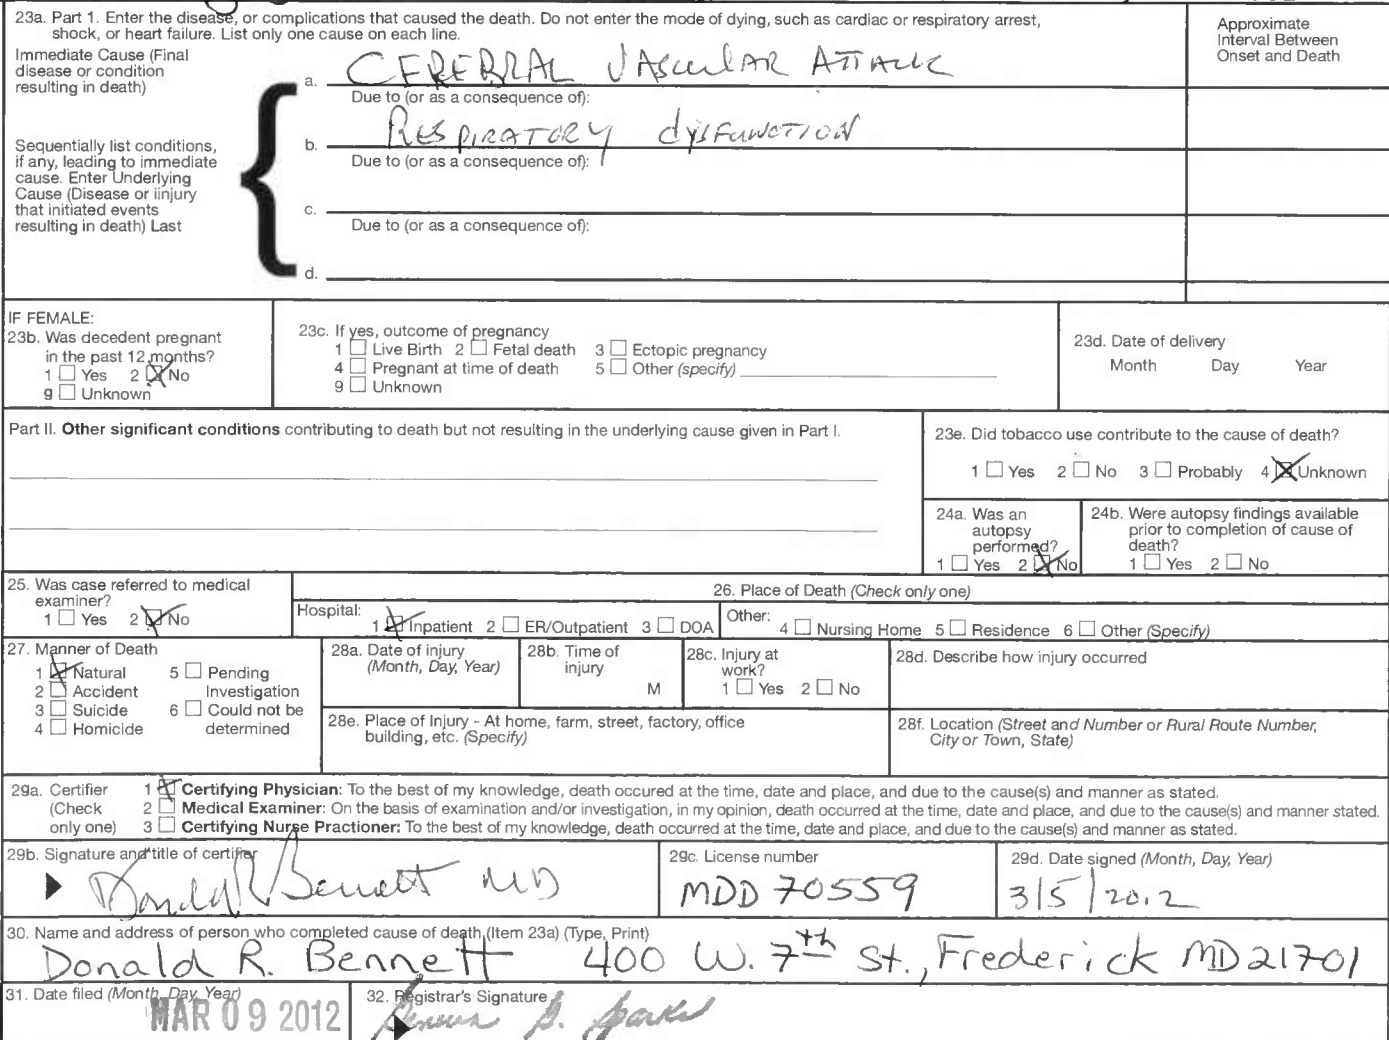 23a. Part 1. Enter the disease, or complications that caused the death. Do not enter the mode of dying, such as cardiac or respiratory arrest,
shock, or heart failure. List only one cause on each line.
Approximate
Interval Between
Onset and Death
Immediate Cause (Final
disease or condition
resulting in death)
a. CEREBRAL VASCULAR ATTACK
Due to (or as a consequence of):
Sequentially list conditions,
if any, leading to immediate
cause. Enter Underlying
Cause (Disease or iinjury
that initiated events
resulting in death) Last
b. RESPIRATORY dysFUNCTION
Due to (or as a consequence of):
c.
Due to (or as a consequence of):
d.
IF FEMALE:
23b. Was decedent pregnant
in the past 12 months?
1 Yes 2 No
9 Unknown
23c. If yes, outcome of pregnancy
1 Live Birth 2 Fetal death 3 Ectopic pregnancy
4 Pregnant at time of death 5 Other (specify)
9 Unknown
23d. Date of delivery
Month Day Year
Part II. Other significant conditions contributing to death but not resulting in the underlying cause given in Part I.
23e. Did tobacco use contribute to the cause of death?
1 Yes 2 No 3 Probably 4 Unknown
24a. Was an
autopsy
performed?
1 Yes 2 No
24b. Were autopsy findings available
prior to completion of cause of
death?
1 Yes 2 No
25. Was case referred to medical
examiner?
1 Yes 2 No
26. Place of Death (Check only one)
Hospital: 1 Inpatient 2 ER/Outpatient 3 DOA
Other: 4 Nursing Home 5 Residence 6 Other (Specify)
27. Manner of Death
1 Natural 5 Pending
2 Accident Investigation
3 Suicide 6 Could not be
4 Homicide determined
28a. Date of injury
(Month, Day, Year)
28b. Time of
injury
M
28c. Injury at
work?
1 Yes 2 No
28d. Describe how injury occurred
28e. Place of Injury - At home, farm, street, factory, office
building, etc. (Specify)
28f. Location (Street and Number or Rural Route Number,
City or Town, State)
29a. Certifier
(Check
only one)
1 Certifying Physician: To the best of my knowledge, death occured at the time, date and place, and due to the cause(s) and manner as stated.
2 Medical Examiner: On the basis of examination and/or investigation, in my opinion, death occurred at the time, date and place, and due to the cause(s) and manner stated.
3 Certifying Nurse Practioner: To the best of my knowledge, death occurred at the time, date and place, and due to the cause(s) and manner as stated.
29b. Signature and title of certifier
Donald R Bennett MD
29c. License number
MDD 70559
29d. Date signed (Month, Day, Year)
3/5/2012
30. Name and address of person who completed cause of death (Item 23a) (Type, Print)
Donald R. Bennett 400 W. 7th St., Frederick MD 21701
31. Date filed (Month, Day, Year)
MAR 09 2012
32. Registrar's Signature